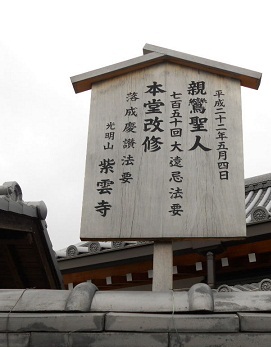 平成二十二年五月四日
親鸞聖人
七百五十回大遠忌法要
本堂改修
落成慶讃法要
光明山
紫雲寺